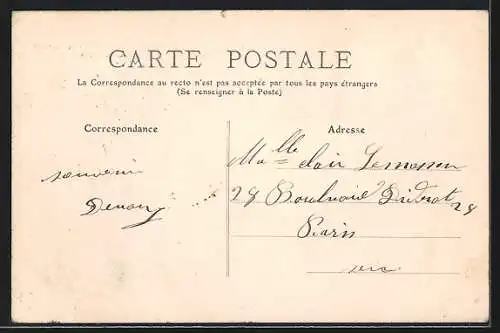 CARTE POSTALE
La Correspondance au recto n'est pas acceptée par tous les pays étrangers
(Se renseigner à la Poste)
Correspondance
Adresse
souvenir
Melle clair Lemasson
28 Boulevard Diderot 28
Paris